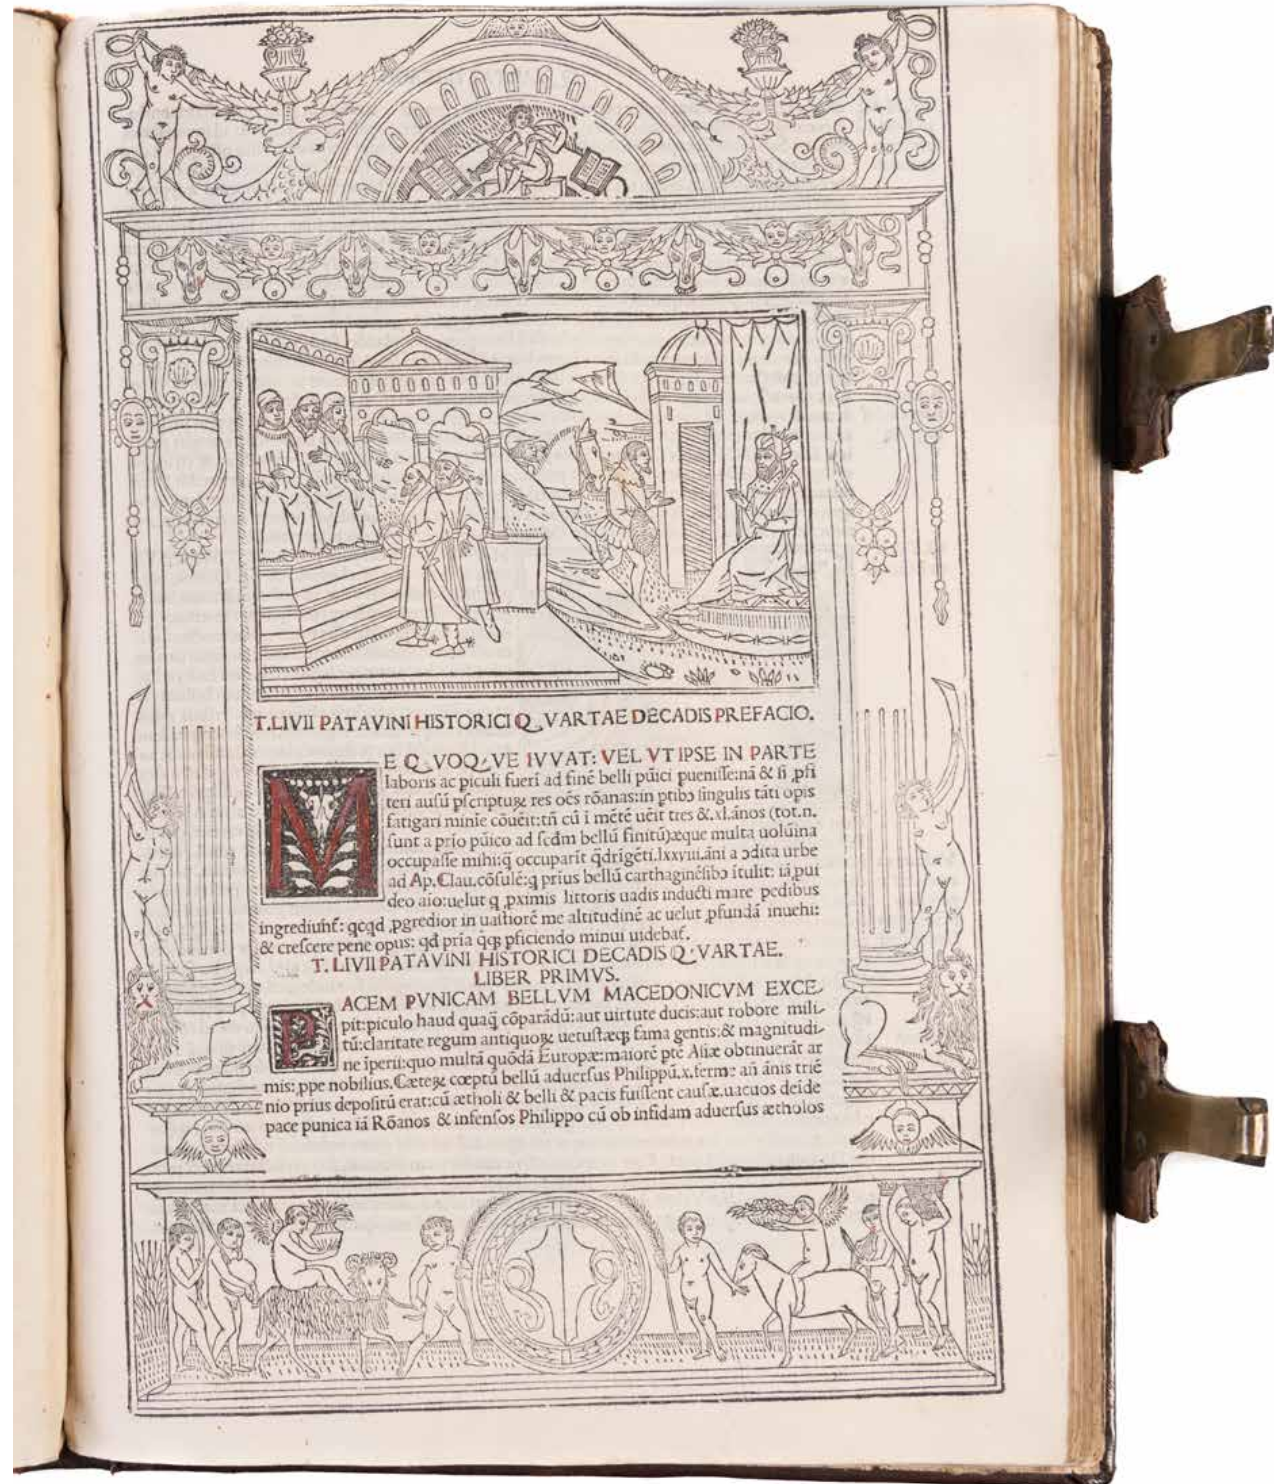 T. LIVII PATAVINI HISTORICI QVARTAE DECADIS PREFACIO.
ME QVOQVE IVVAT: VEL VT IPSE IN PARTE
laboris ac piculi fueri ad finē belli pūici pueniſſe:nā & ſi ꝓfi
teri auſū pſcripturꝫ res oēs rōanas:in ptibꝰ ſingulis tāti opis
fatigari minie cōuēit:tñ cū i mētē uēit tres &.xl.ānos (tot.n.
ſunt a prīo pūico ad ſcdm bellū finitū)æque multa uolūina
occupaſſe mihi:q̄ occuparit q̄drigēti.lxxviii.āni a ↄdita urbe
ad Ap.Clau.cōſulē:q prius bellū carthaginēſibꝰ ītulit: iā ꝓui
deo aīo:uelut q ꝓximis littoris uadis inducti mare pedibus
ingrediūt̄: qcqd ꝓgredior in uaſtiorē me altitudinē ac uelut ꝓfundā inuehi:
& creſcere pene opus: qd pria q̄qꝫ pficiendo minui uidebat̄.
T. LIVII PATAVINI HISTORICI DECADIS QVARTAE.
LIBER PRIMVS.
PACEM PVNICAM BELLVM MACEDONICVM EXCE-
pit:piculo haud quaq̄ cōparādū:aut uirtute ducis:aut robore mili-
tū:claritate regum antiquoꝝ uetuſtæqꝫ fama gentis:& magnitudi-
ne īperii:quo multā quōdā Europæ:maiorē ptē Aſiæ obtinuerāt ar
mis:ꝓpe nobilius.Cæteꝝ cœptū bellū aduerſus Philippū.x.ferme añ ānis triē
nio prius depoſitū erat:cū ætholi & belli & pacis fuiſſent cauſæ.uacuos deīde
pace punica iā Rōanos & infenſos Philippo cū ob infidam aduerſus ætholos